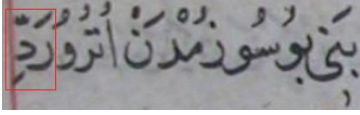 بَنِى بُوسُوزُمْدَنْ اُتُرُو رَدِّ